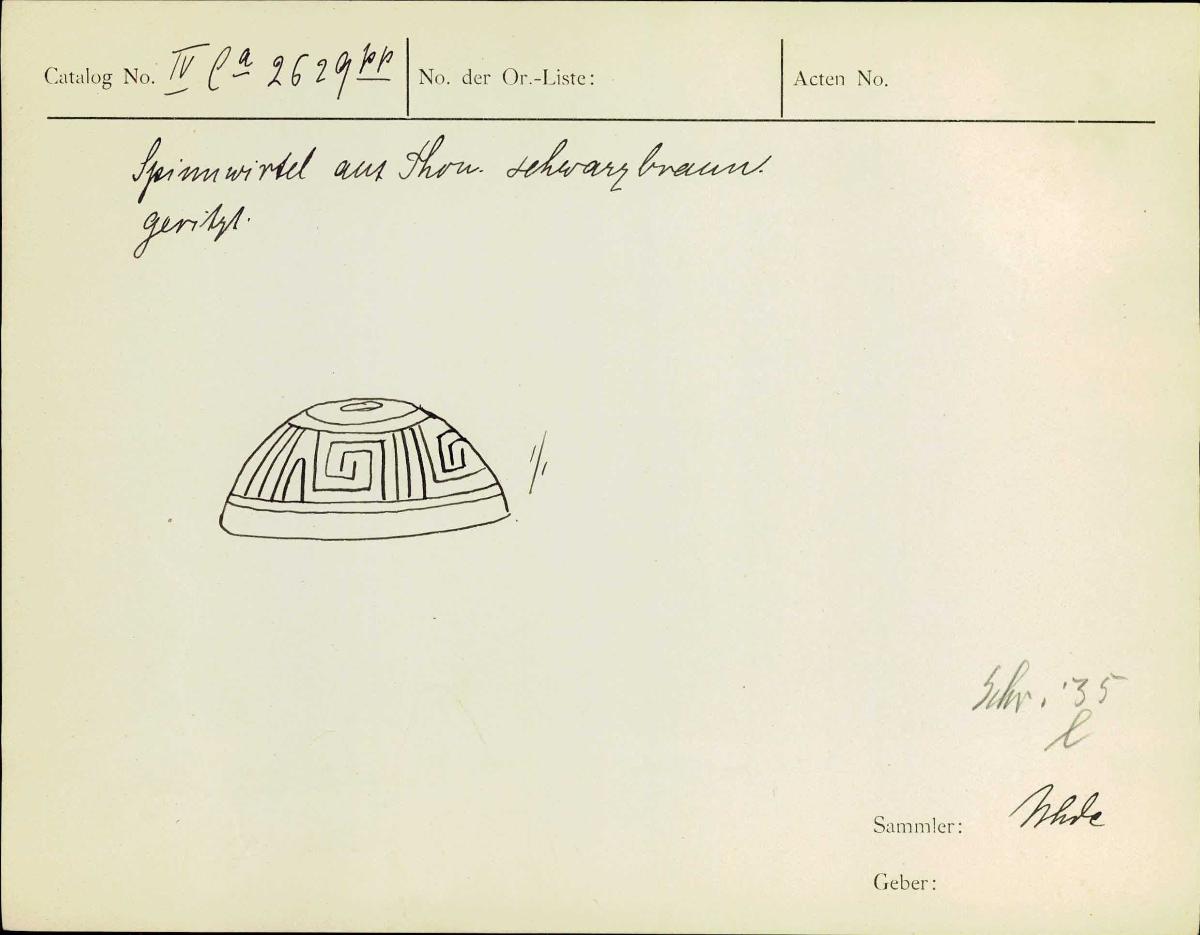 Catalog No. IV Ca 2629 pp No. der Or.-Liste: Acten No.
Spinnwirtel aus Thon. schwarzbraun.
geritzt.
1/1
Schr. '35
l
Sammler: Uhde
Geber: